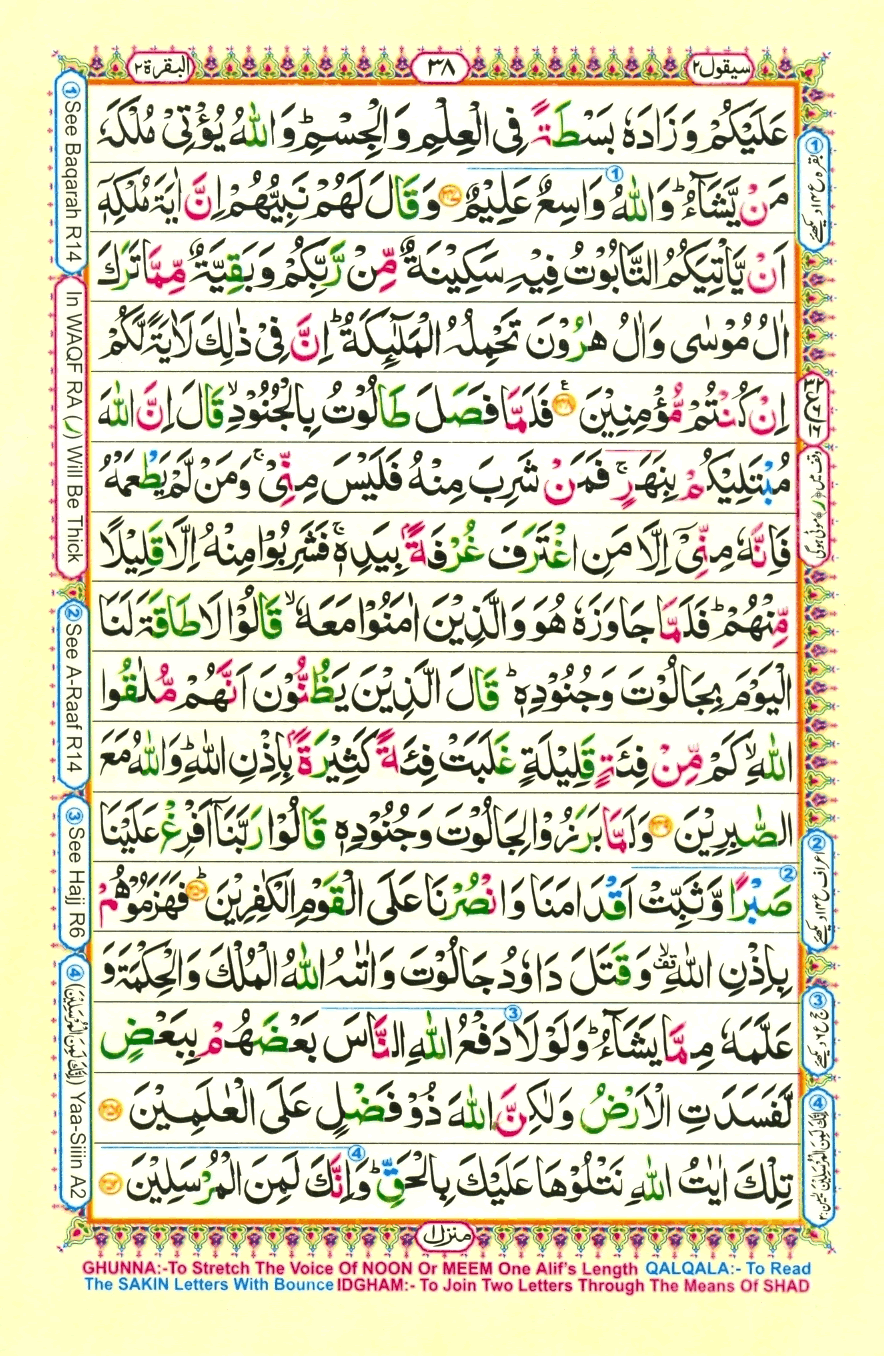 سيقول٢ ٣٨ البقرة٢
عَلَيْكُمْ وَزَادَهٗ بَسْطَةً فِی الْعِلْمِ وَالْجِسْمِ ؕ وَاللّٰهُ يُؤْتِیْ مُلْكَهٗ
مَنْ يَّشَآءُ ؕ وَاللّٰهُ وَاسِعٌ عَلِيْمٌ ﴿۲۴۷﴾ وَقَالَ لَهُمْ نَبِيُّهُمْ اِنَّ اٰيَةَ مُلْكِهٖۤ
اَنْ يَّاْتِيَكُمُ التَّابُوْتُ فِيْهِ سَكِيْنَةٌ مِّنْ رَّبِّكُمْ وَبَقِيَّةٌ مِّمَّا تَرَكَ
اٰلُ مُوْسٰی وَاٰلُ هٰرُوْنَ تَحْمِلُهُ الْمَلٰٓئِكَةُ ؕ اِنَّ فِیْ ذٰلِكَ لَاٰيَةً لَّكُمْ
اِنْ كُنْتُمْ مُّؤْمِنِيْنَ ﴿۲۴۸﴾ فَلَمَّا فَصَلَ طَالُوْتُ بِالْجُنُوْدِ ۙ قَالَ اِنَّ اللّٰهَ
مُبْتَلِيْكُمْ بِنَهَرٍ ۚ فَمَنْ شَرِبَ مِنْهُ فَلَيْسَ مِنِّیْ ۚ وَمَنْ لَّمْ يَطْعَمْهُ
فَاِنَّهٗ مِنِّیْۤ اِلَّا مَنِ اغْتَرَفَ غُرْفَةًۢ بِيَدِهٖ ۚ فَشَرِبُوْا مِنْهُ اِلَّا قَلِيْلًا
مِّنْهُمْ ؕ فَلَمَّا جَاوَزَهٗ هُوَ وَالَّذِيْنَ اٰمَنُوْا مَعَهٗ ۙ قَالُوْا لَا طَاقَةَ لَنَا
الْيَوْمَ بِجَالُوْتَ وَجُنُوْدِهٖ ؕ قَالَ الَّذِيْنَ يَظُنُّوْنَ اَنَّهُمْ مُّلٰقُوا
اللّٰهِ ۙ كَمْ مِّنْ فِئَةٍ قَلِيْلَةٍ غَلَبَتْ فِئَةً كَثِيْرَةًۢ بِاِذْنِ اللّٰهِ ؕ وَاللّٰهُ مَعَ
الصّٰبِرِيْنَ ﴿۲۴۹﴾ وَلَمَّا بَرَزُوْا لِجَالُوْتَ وَجُنُوْدِهٖ قَالُوْا رَبَّنَاۤ اَفْرِغْ عَلَيْنَا
صَبْرًا وَّثَبِّتْ اَقْدَامَنَا وَانْصُرْنَا عَلَی الْقَوْمِ الْكٰفِرِيْنَ ﴿۲۵۰﴾ ؕ فَهَزَمُوْهُمْ
بِاِذْنِ اللّٰهِ ۙ۫ وَقَتَلَ دَاوٗدُ جَالُوْتَ وَاٰتٰىهُ اللّٰهُ الْمُلْكَ وَالْحِكْمَةَ وَ
عَلَّمَهٗ مِمَّا يَشَآءُ ؕ وَلَوْلَا دَفْعُ اللّٰهِ النَّاسَ بَعْضَهُمْ بِبَعْضٍ
لَّفَسَدَتِ الْاَرْضُ وَلٰكِنَّ اللّٰهَ ذُوْ فَضْلٍ عَلَی الْعٰلَمِيْنَ ﴿۲۵۱﴾
تِلْكَ اٰيٰتُ اللّٰهِ نَتْلُوْهَا عَلَيْكَ بِالْحَقِّ ؕ وَاِنَّكَ لَمِنَ الْمُرْسَلِيْنَ ﴿۲۵۲﴾
منزل١
① See Baqarah R14
In WAQF RA (ر) Will Be Thick
② See A-Raaf R14
③ See Hajj R6
④ (اِنَّكَ لَمِنَ الْمُرْسَلِيْنَ) Yaa-Siiin A2
GHUNNA:-To Stretch The Voice Of NOON Or MEEM One Alif's Length QALQALA:- To Read
The SAKIN Letters With Bounce IDGHAM:- To Join Two Letters Through The Means Of SHAD